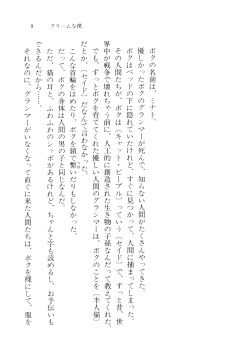 9　クリームな僕
ボクの名前は、ミナト。
優しかったボクのグランマーが死んで、知らない人間がたくさんやってきた。
ボクはベッドの下に隠れていたけれど、すぐに見つかって、人間に捕まってしまった。
その人間たちが、ボクは〔キャット・ピープル〕っていう〔セイド〕で、ずっと昔、世
界中が戦争で壊れちゃう前に、人工的に創造された生き物の子孫なんだって教えてくれた。
でも、ずっとボクを育ててくれた優しい人間のグランマーは、ボクのことを〔半人猫〕
だとか、〔セイド〕だなんて言わなかった。
こんな首輪をはめたり、ボクを鎖で繋いだりもしなかった。
だって、ボクの身体は人間の男の子と同じなんだ。
ただ、猫の耳と、ふわふわのシッポがあるけれど、ちゃんと字も読めるし、お手伝いも
できるんだから……。
それなのに、グランマーがいなくなって直ぐに来た人間たちは、ボクを裸にして、服を